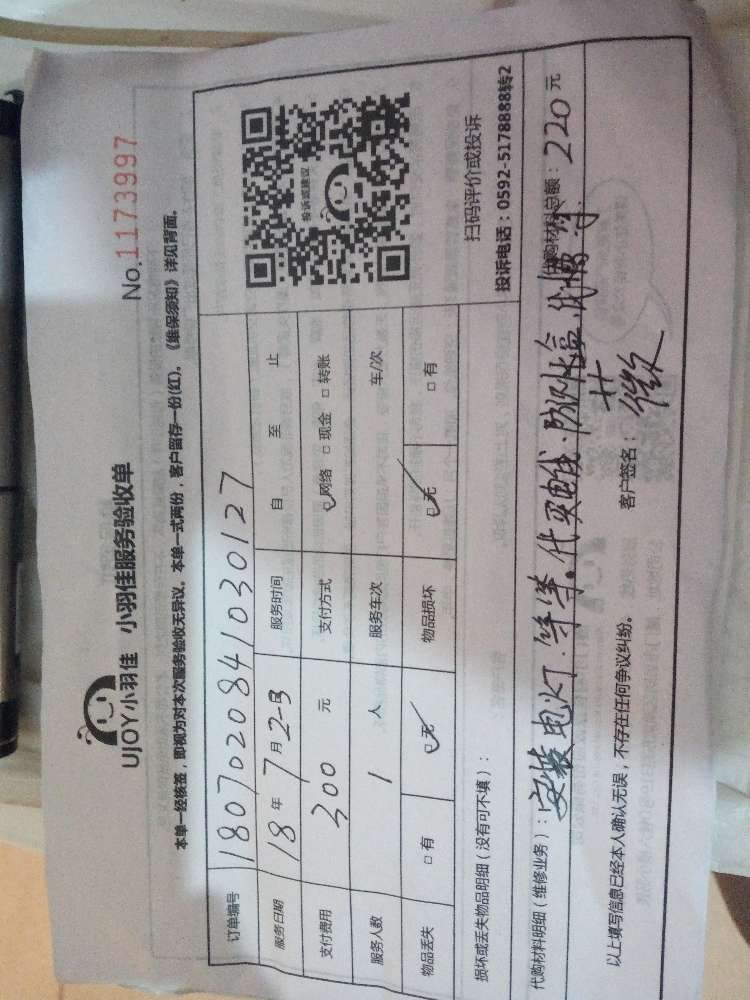 UJOY小羽佳 小羽佳服务验收单
No.1173997
本单一经核签，即视为对本次服务验收无异议。本单一式两份，客户留存一份(红)。《维保须知》详见背面。
订单编号 180702084103012​7
服务日期 18年7月2日 服务时间 自 至 止
支付费用 300 元 支付方式 网络 现金 转账
服务人数 1 人 服务车次 车/次
物品丢失 有 无 物品损坏 无 有
投诉或建议
扫码评价或投诉
投诉电话：0592-5178888转2
损坏或丢失物品明细（没有可不填）：
代购材料明细（维修业务）：安装电灯.等等。代买电线.防水盒 代购材料总额：220元
以上填写信息已经本人确认无误，不存在任何争议纠纷。 客户签名：